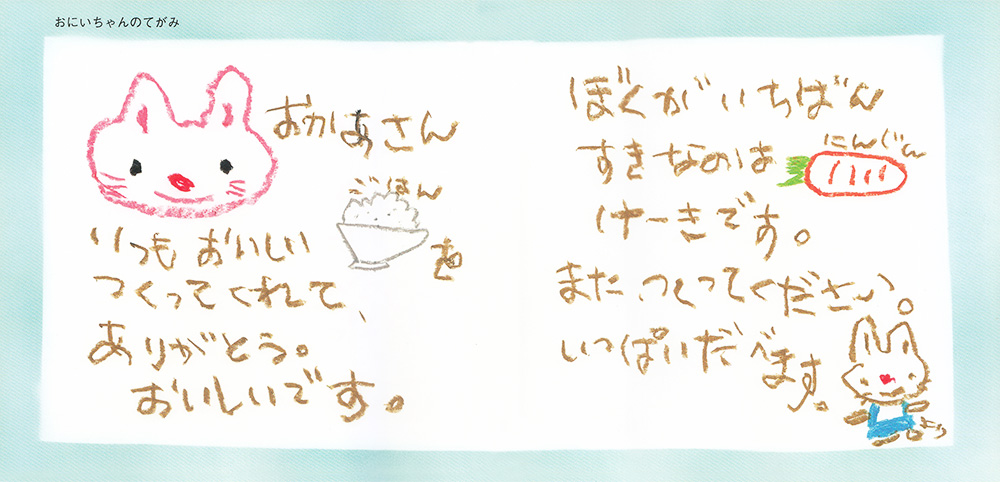 おにいちゃんのてがみ
おかあさん
ごはん
を
いつもおいしい
つくってくれて、
ありがとう。
おいしいです。
ぼくがいちばん
すきなのは
にんじん
けーきです。
また、つくってください。
いっぱいだべます。
より